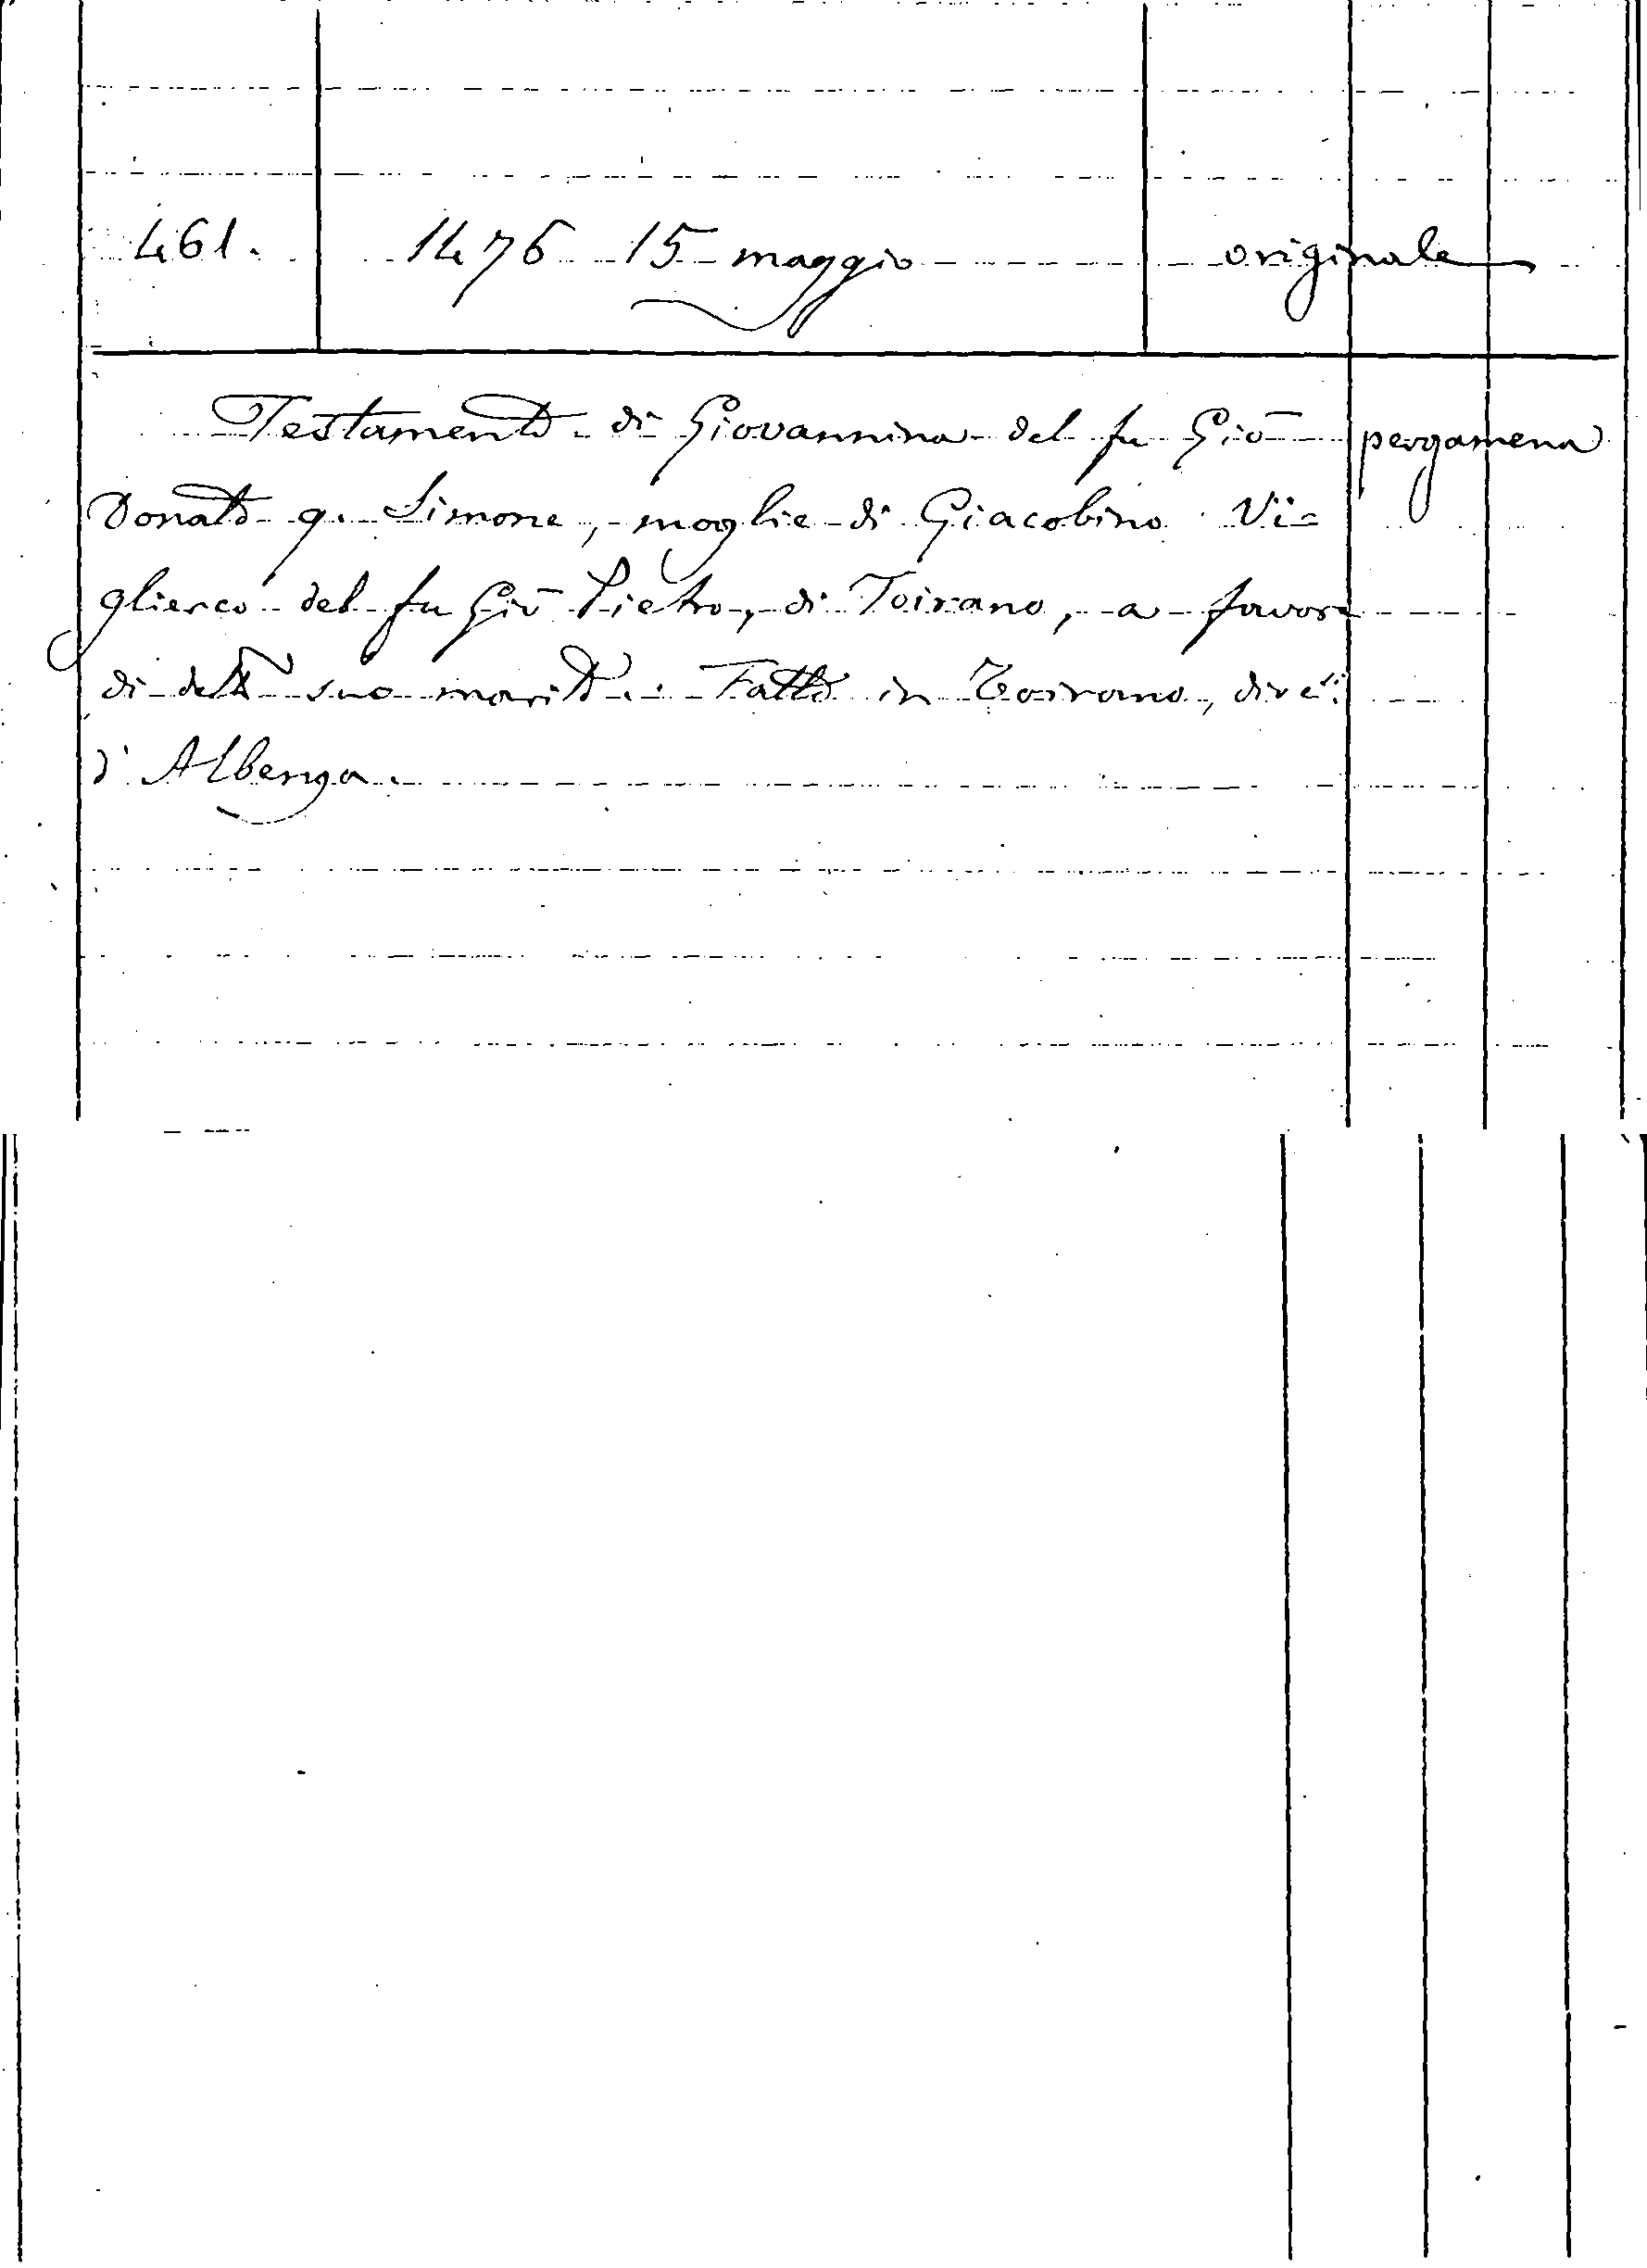 461. 1476 15 maggio originale
Testamento di Giovannina del fu Giō pergamena
Donato q. Simone, moglie di Giacobino Vi=
gliesco del fu Giō Pietro, di Toirano, a favore
di detto suo marito. Fatto in Toirano,
d'Albenga.